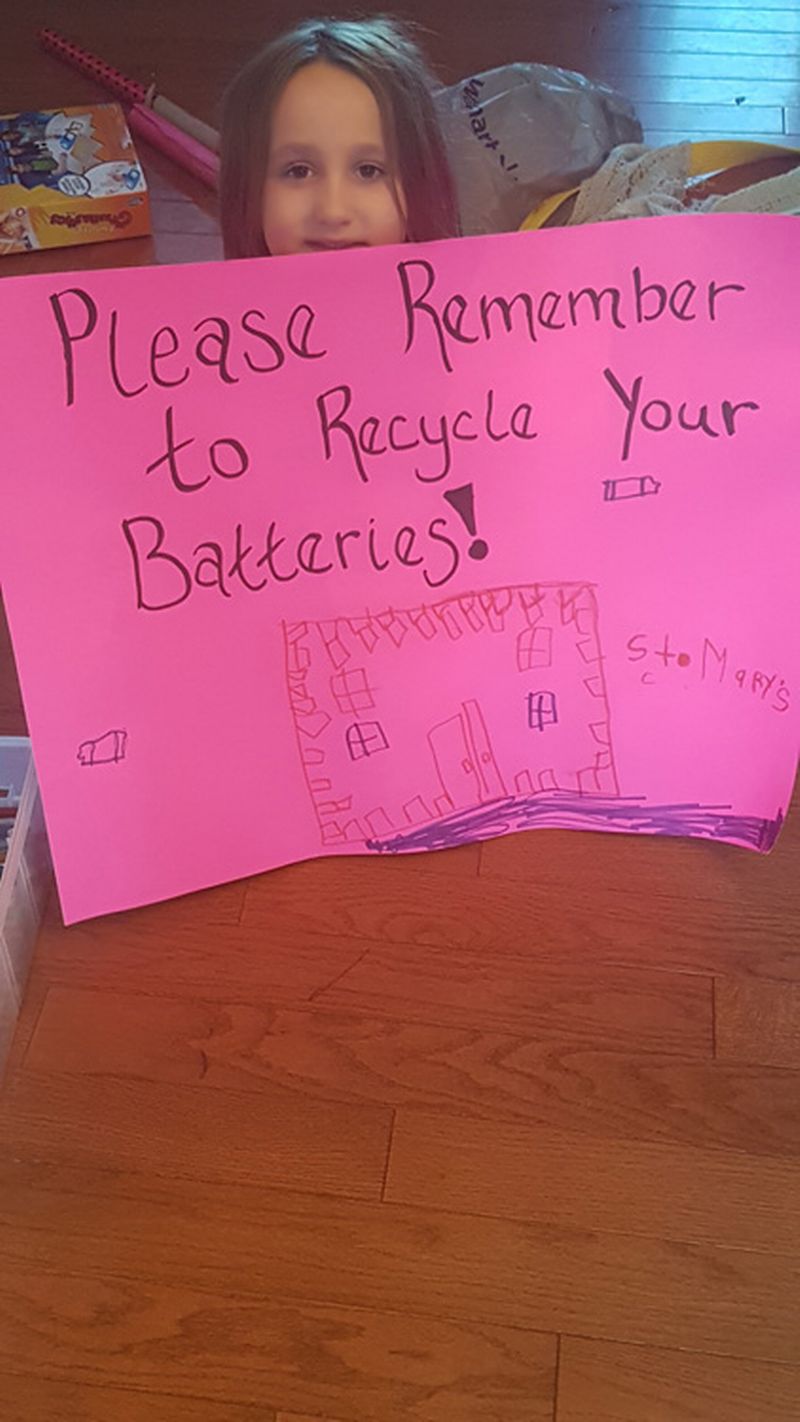 Please Remember
to Recycle Your
Batteries!
St. Mary's